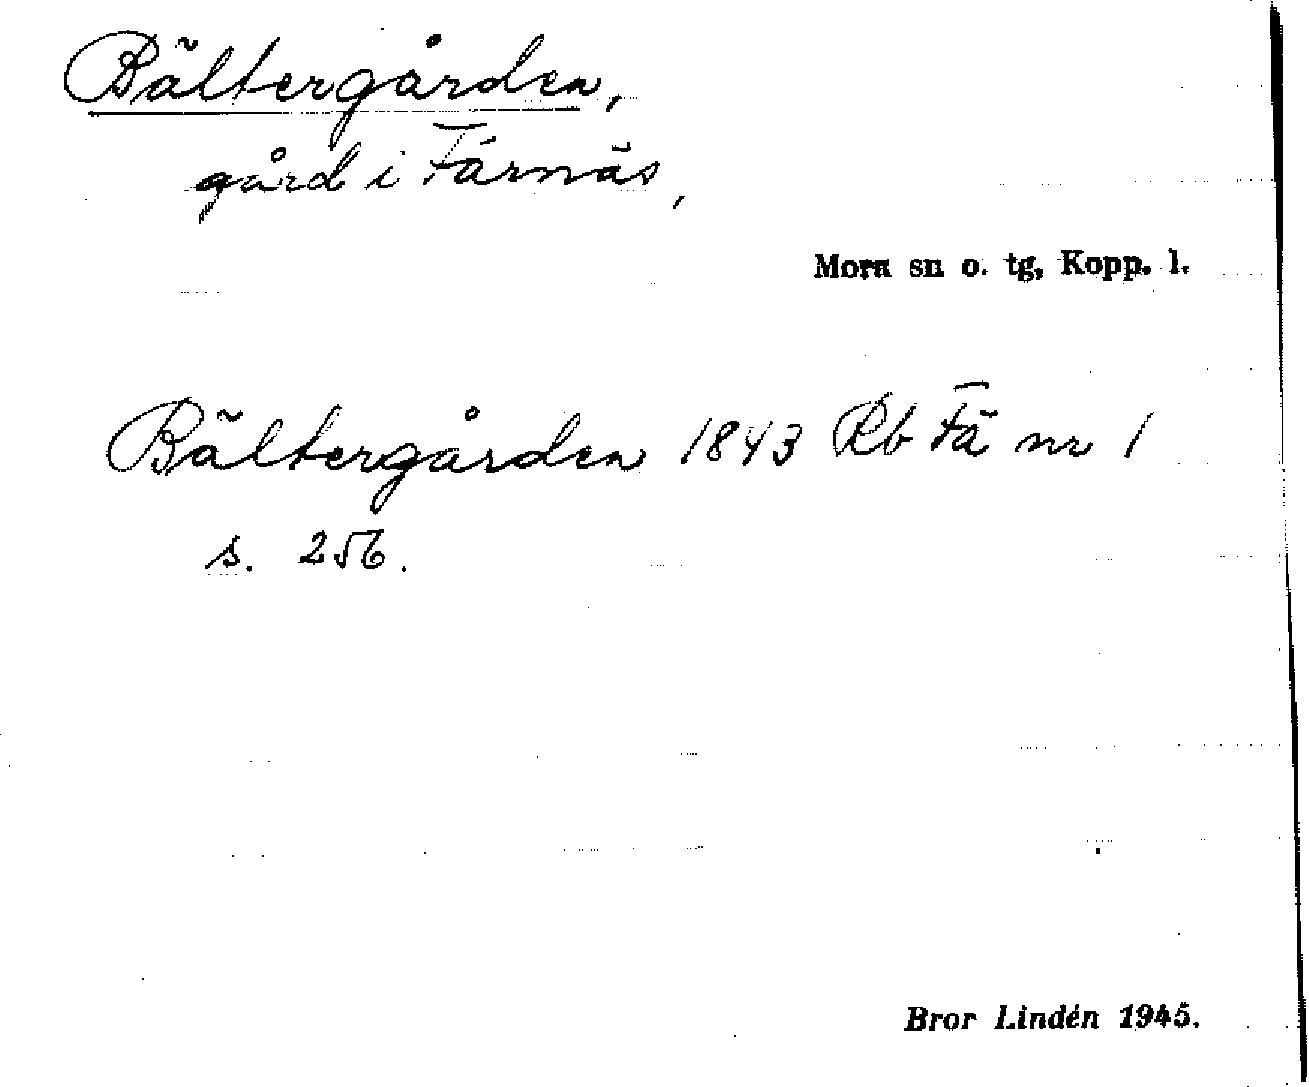 Bältergården,
gård i Färnäs,
Mora sn o. tg, Kopp. l.
Bältergården 1843 Rb Fä nr 1
s. 256.
Bror Lindén 1945.